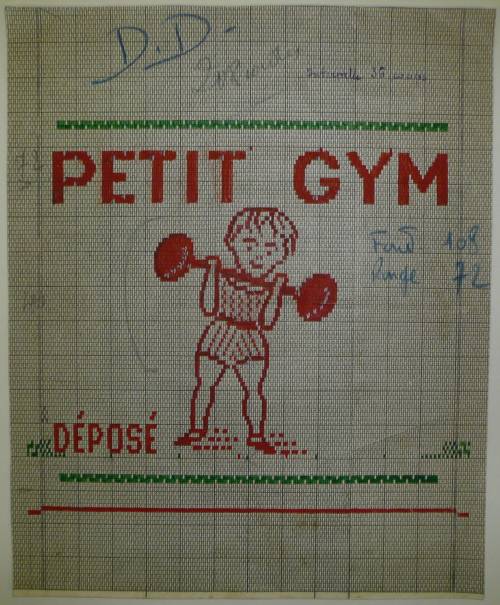 D.D.
PETIT GYM
Fond 108
Rouge 72
DÉPOSÉ